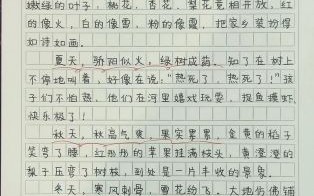 嫩绿的叶子，桃花，杏花，梨花竞相开放，红
的像火，白的像雪，粉的像霞，把家乡装扮得
如诗如画。
夏天，骄阳似火，绿树成荫。知了在树上
不停地叫着，好像在说："热死了！热死了！"孩
子们不怕热，他们在河里嬉戏玩耍，捉鱼摸虾，
快乐极了！
秋天，秋高气爽，果实累累，金黄的稻子
笑弯了腰，红彤彤的苹果挂满枝头，黄澄澄的
梨子压弯了树枝，到处是一片丰收的景象。
冬天，寒风刺骨，雪花纷飞，大地仿佛铺